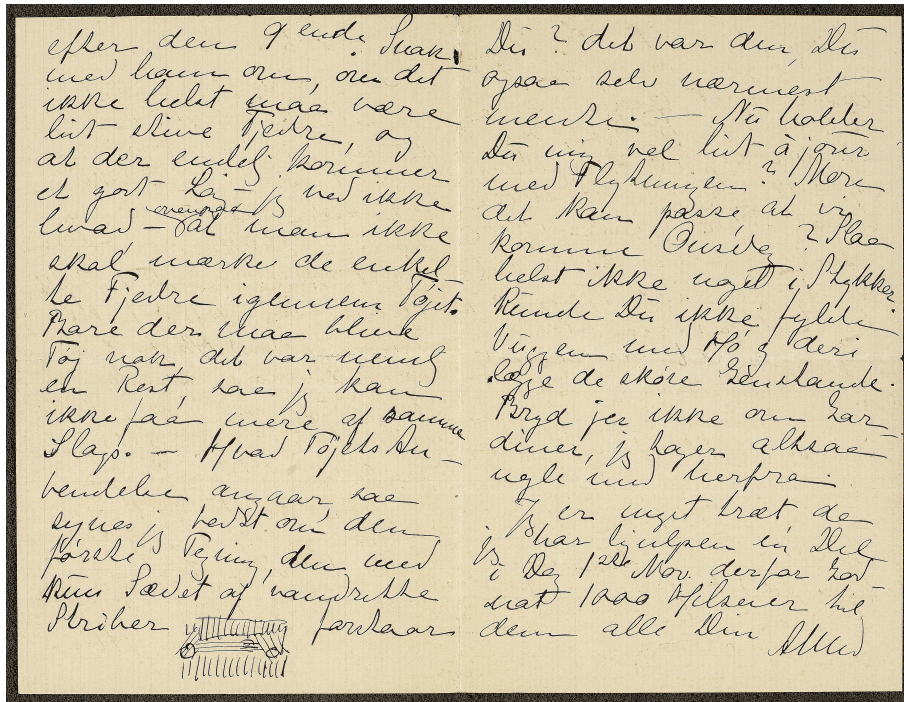 efter den gende Snak
med ham om, om det
ikke helst maa være
lidt stive Fjedre, og
at der endelig kommer
et godt Lag jeg ved ikke
hvad – ovenpaa at man ikke
skal mærke de enkel
te Fjedre igennem Tøjet.
Bare der maa blive
Tøj nok, det var nemlig
en Rest, saa jeg kan
ikke faa mere af samme
Slags. – Hvad Tøjets An-
vendelse angaar, saa
synes jeg bedst om den
første Tegning, den med
kun Sædet af vandrette
Striber forstaar
Du? det var den, Du
ogsaa selv nærmest
mente. – Nu holder
Du mig vel lidt à jour
med Flytningen? Mon
det kan passe at vi
komme Onsdag? Slaa
helst ikke noget i Stykker.
Kunde Du ikke fylde
Vuggen med Hø og deri
lægge de skøre Genstande.
Bryd jer ikke om Gar-
diner, jeg tager altsaa
nogle med herfra.
Jeg er meget træt da
jeg har hjulpen en Del
i Dag 1ste Nov. derfor God
nat 1000 Hilsener til
dem alle Din